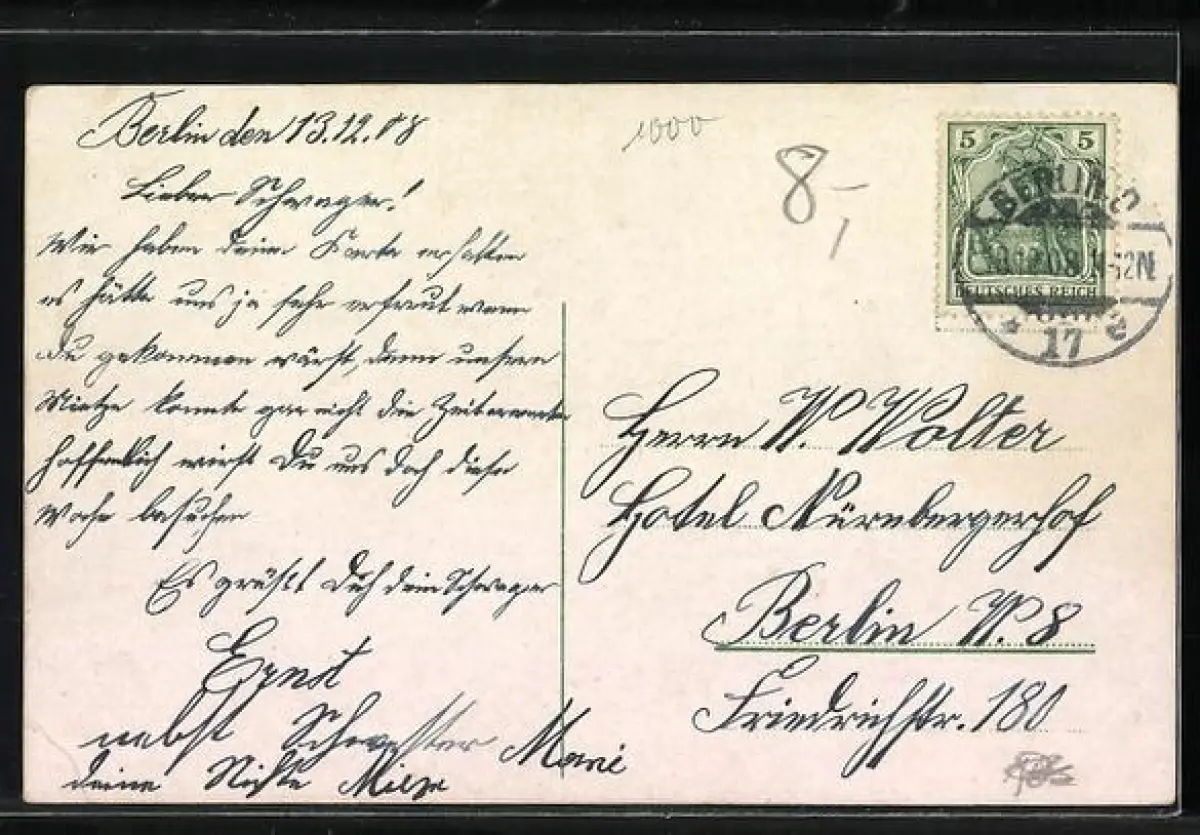 Berlin den 13.12.08
Lieber Schwager!
Wir haben deine Karte erhalten
es hätte uns ja sehr erfreut wenn
Du gekommen wärst, denn unsere
Mietze konnte gar nicht die Zeit erwarten
hoffentlich wirst Du uns doch diese
Woche besuchen
Es grüßt Dich dein Schwager
Ernst
nebst Schwester Marie
deine Nichte Mieze
1000
8,-
5 5
DEUTSCHES REICH
BERLIN O
12.08. 11-12N
* 17 e
Herrn W. Wolter
Hotel Nürnbergerhof
Berlin W. 8
Friedrichstr. 180